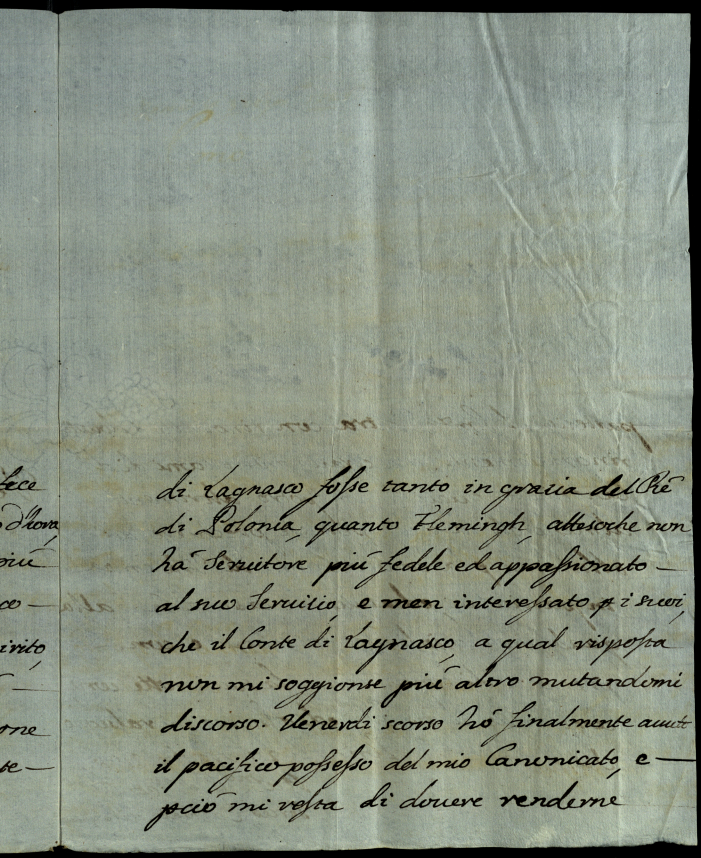 fece
d'hora,
più
co —
irito,
—
one
te —
di Lagnasco fosse tanto in grazia del Rè
di Polonia, quanto Flemingh, attesoche non
hà Seruitore più fedele ed appassionato —
al suo Seruitio, e men interessato p i suoi,
che il Conte di Lagnasco, a qual risposta
non mi soggionse più altro mutandomi
discorso. Uenerdi scorso hò finalmente auut
il pacifico possesso del mio Canonicato, e —
pciò mi resta di douere renderne